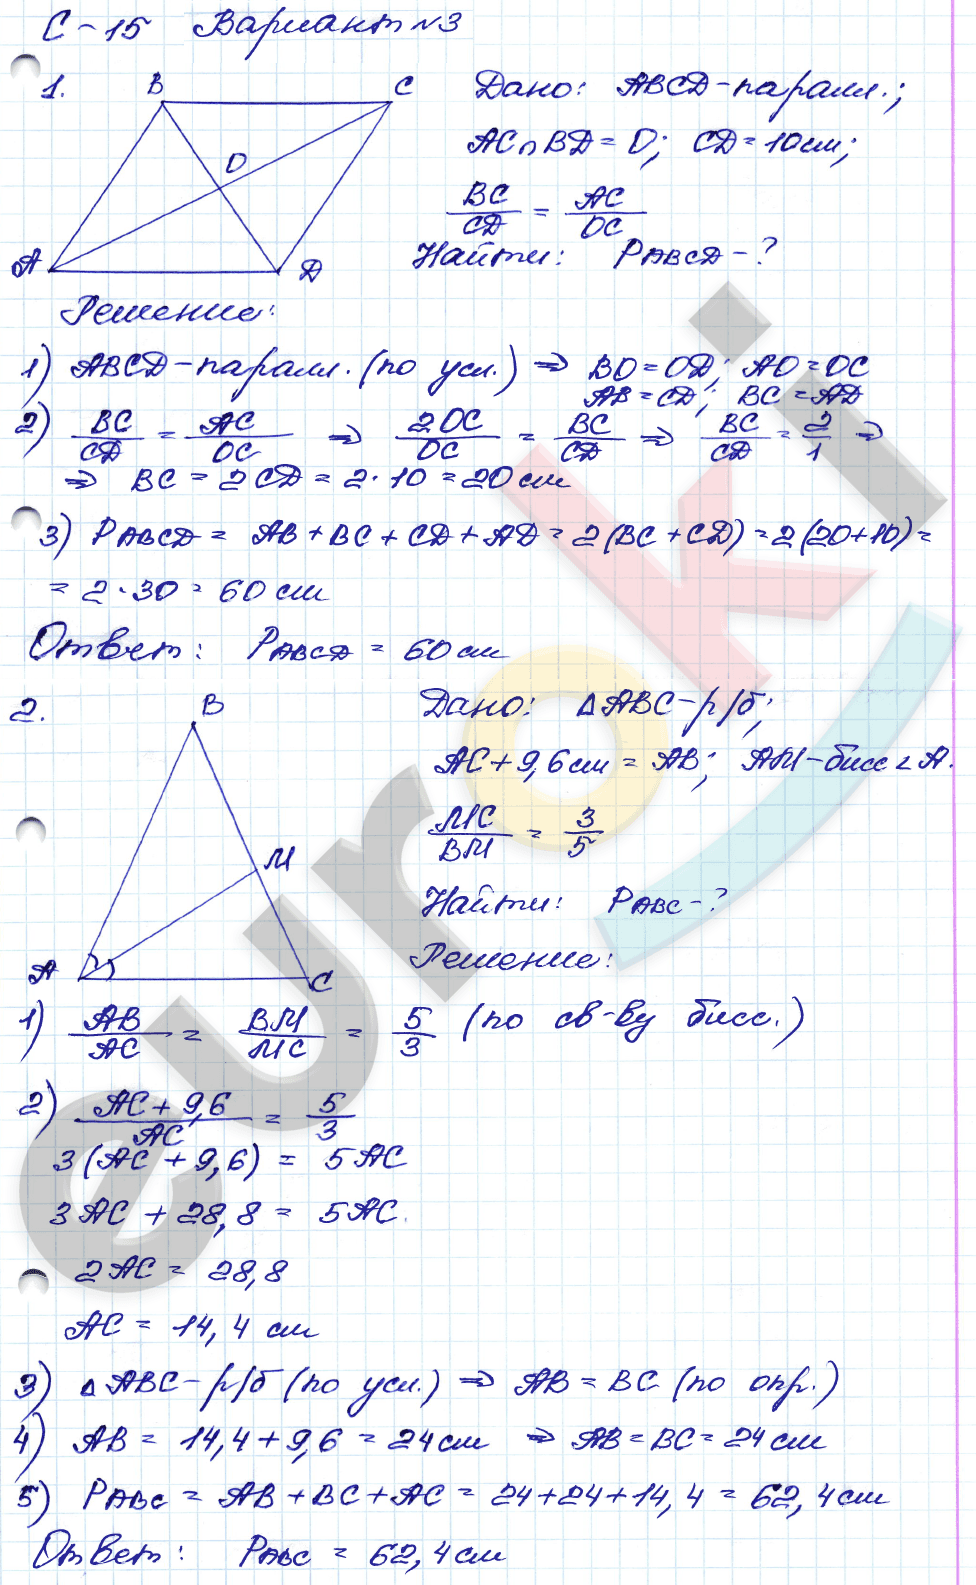 С-15 Вариант №3
1.
B C
O
A D
Дано: ABCD-паралл.;
AC∩BD=O; CD=10см;
BC/CD = AC/OC
Найти: P ABCD-?
Решение:
1) ABCD-паралл. (по усл.) => BO=OD; AO=OC
AB=CD; BC=AD
2) BC/CD = AC/OC => 2OC/OC = BC/CD => BC/CD = 2/1 =>
=> BC = 2CD = 2·10 = 20см
3) P ABCD = AB+BC+CD+AD = 2(BC+CD) = 2(20+10) =
= 2·30 = 60 см
Ответ: P ABCD = 60 см
2.
B
M
A C
Дано: △ABC-р/б;
AC+9,6см = AB; AM-бисс ∠A.
MC/BM = 3/5
Найти: P ABC-?
Решение:
1) AB/AC = BM/MC = 5/3 (по св-ву бисс.)
2) AC+9,6/AC = 5/3
3(AC+9,6) = 5AC
3AC+28,8 = 5AC
2AC = 28,8
AC = 14,4 см
3) △ABC-р/б (по усл.) => AB=BC (по опр.)
4) AB = 14,4+9,6 = 24см => AB=BC=24см
5) P ABC = AB+BC+AC = 24+24+14,4 = 62,4см
Ответ: P ABC = 62,4 см
euroki